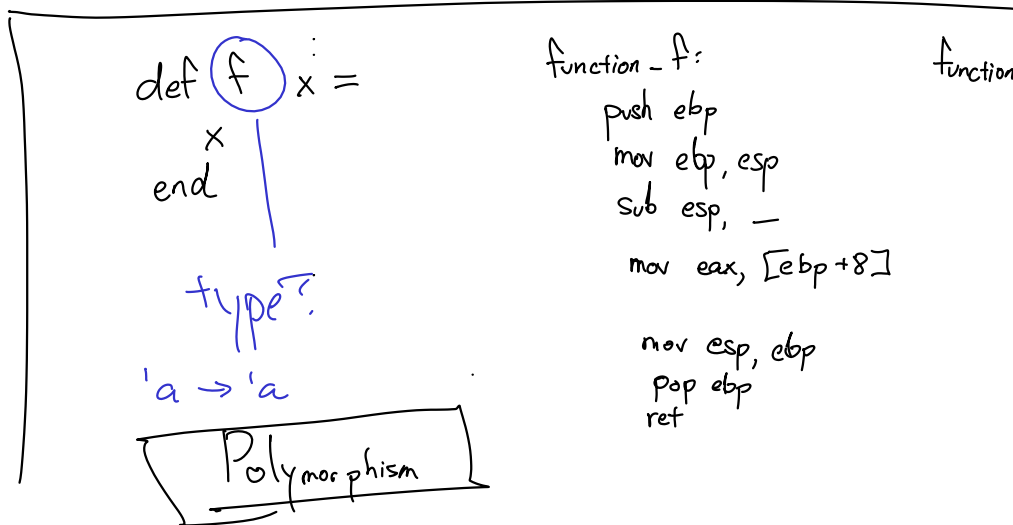 def f x =
x
end
type?
'a → 'a
Polymorphism
function_f:
push ebp
mov ebp, esp
sub esp, __
mov eax, [ebp+8]
mov esp, ebp
pop ebp
ret
function